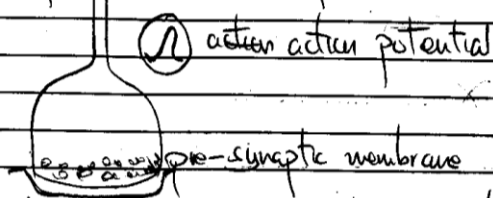 action action potential
pre-synaptic membrane